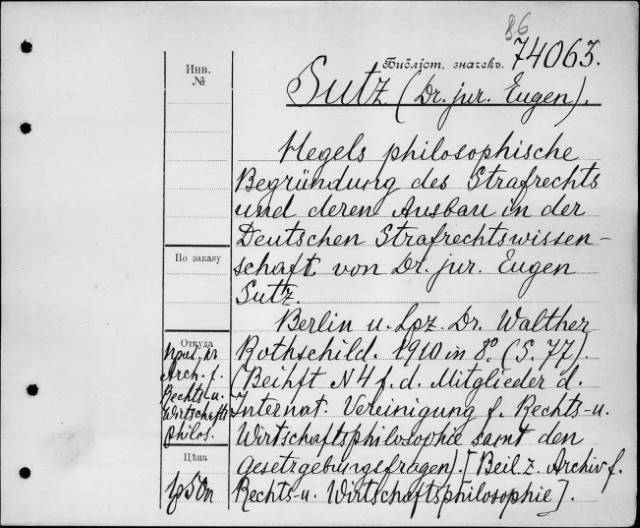 86
Библіот. значекъ. 74063.
Инв.
№
Sutz (Dr. jur. Eugen).
Hegels philosophische
Begründung des Strafrechts
und deren Ausbau in der
Deutschen Strafrechtswissen-
schaft von Dr. jur. Eugen
Sutz.
По заказу
Berlin u. Lpz. Dr. Walther
Rothschild. 1910 in 8° (S. 77).
(Beihft N 4 f. d. Mitglieder d.
Internat. Vereinigung f. Rechts- u.
Wirtschaftsphilosophie samt den
Gesetzgebungsfragen). [Beil. z. Archiv f.
Rechts- u. Wirtschaftsphilosophie].
Откуда
Arch. f.
Rechts- u.
Wirtschafts
philos.
Цѣна